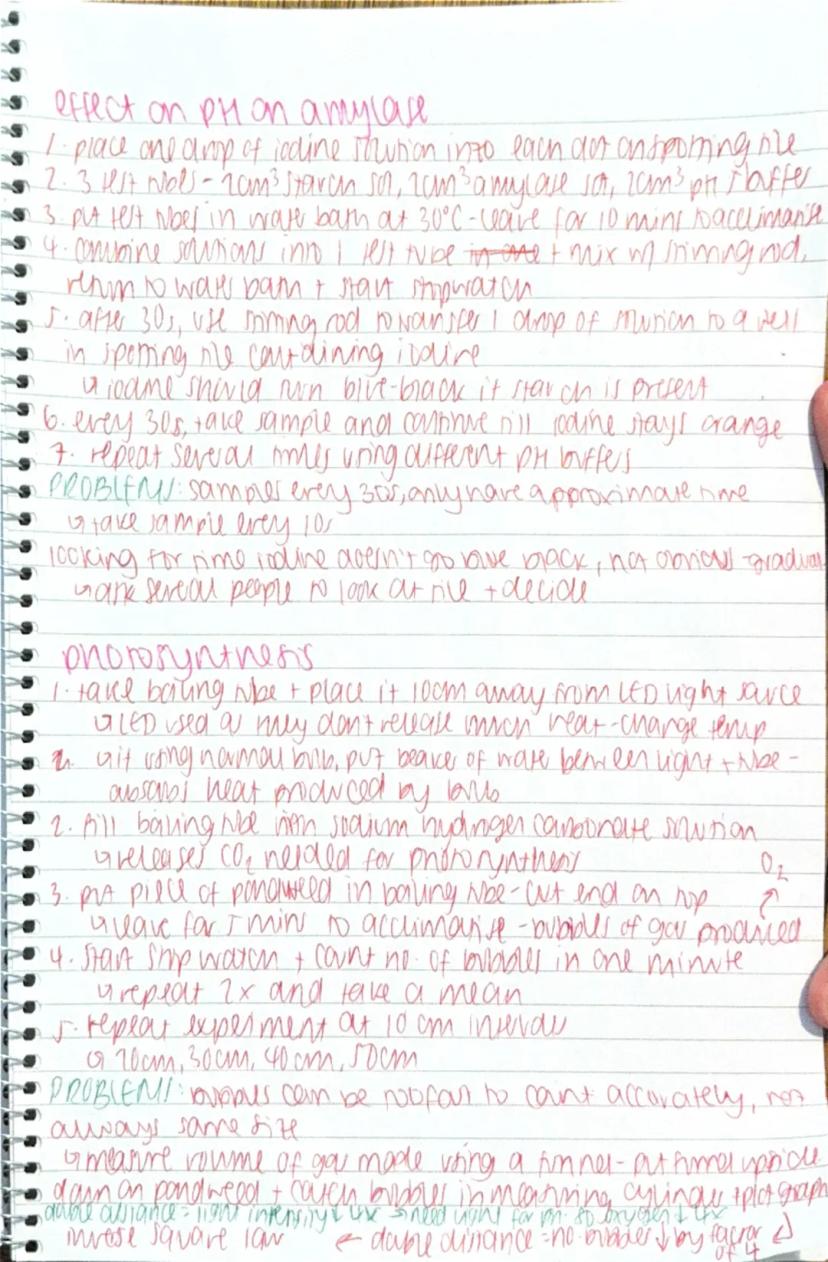 effect on pH on amylase
1. place one drop of iodine solution into each dot on spotting tile
2. 3 test tubes - 2cm³ starch sol, 2cm³ amylase sol, 2cm³ pH 5 buffer
3. put test tubes in water bath at 30°C - leave for 10 mins to acclimatise
4. combine solutions into 1 test tube in one + mix w/ stirring rod,
return to water bath + start stopwatch
5. after 30s, use stirring rod to transfer 1 drop of solution to a well
in spotting tile containing iodine
↳ iodine should turn blue-black if starch is present
6. every 30s, take sample and continue till iodine stays orange
7. repeat several times using different pH buffers
PROBLEMS: samples every 30s, only have approximate time
↳ take sample every 10s
looking for time iodine doesn't go blue black, not obvious - gradual
↳ ask several people to look at tile + decide
photosynthesis
1. take boiling tube + place it 10cm away from LED light source
↳ LED used as they don't release much heat - change temp
2. ↳ if using normal bulb, put beaker of water between light + tube -
absorbs heat produced by bulb
2. fill boiling tube with sodium hydrogen carbonate solution
↳ releases CO₂ needed for photosynthesis
O₂
3. put piece of pondweed in boiling tube - cut end on top ↗
↳ leave for 5 mins to acclimatise - bubbles of gas produced
4. start stopwatch + count no. of bubbles in one minute
↳ repeat 2x and take a mean
5. repeat experiment at 10cm intervals
↳ 20cm, 30cm, 40cm, 50cm
PROBLEMS: bubbles can be too fast to count accurately, not
always same size
↳ measure volume of gas made using a funnel - put funnel upside
down on pondweed + catch bubbles in measuring cylinder + plot graph
double distance = light intensity ↓ 4x → need light for ph. so oxygen ↓ 4x
inverse square law ← double distance = no. bubbles ↓ by factor
of 4